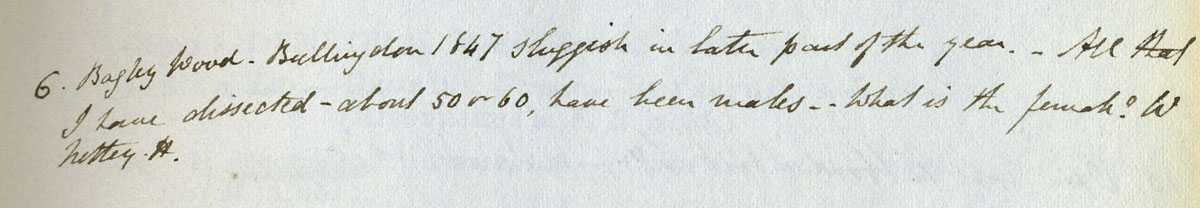 6. Bagley Wood - Bullingdon 1847 sluggish in later part of the year. - All that
I have dissected - about 50 or 60, have been males - - What is the female? W
Netley. H.